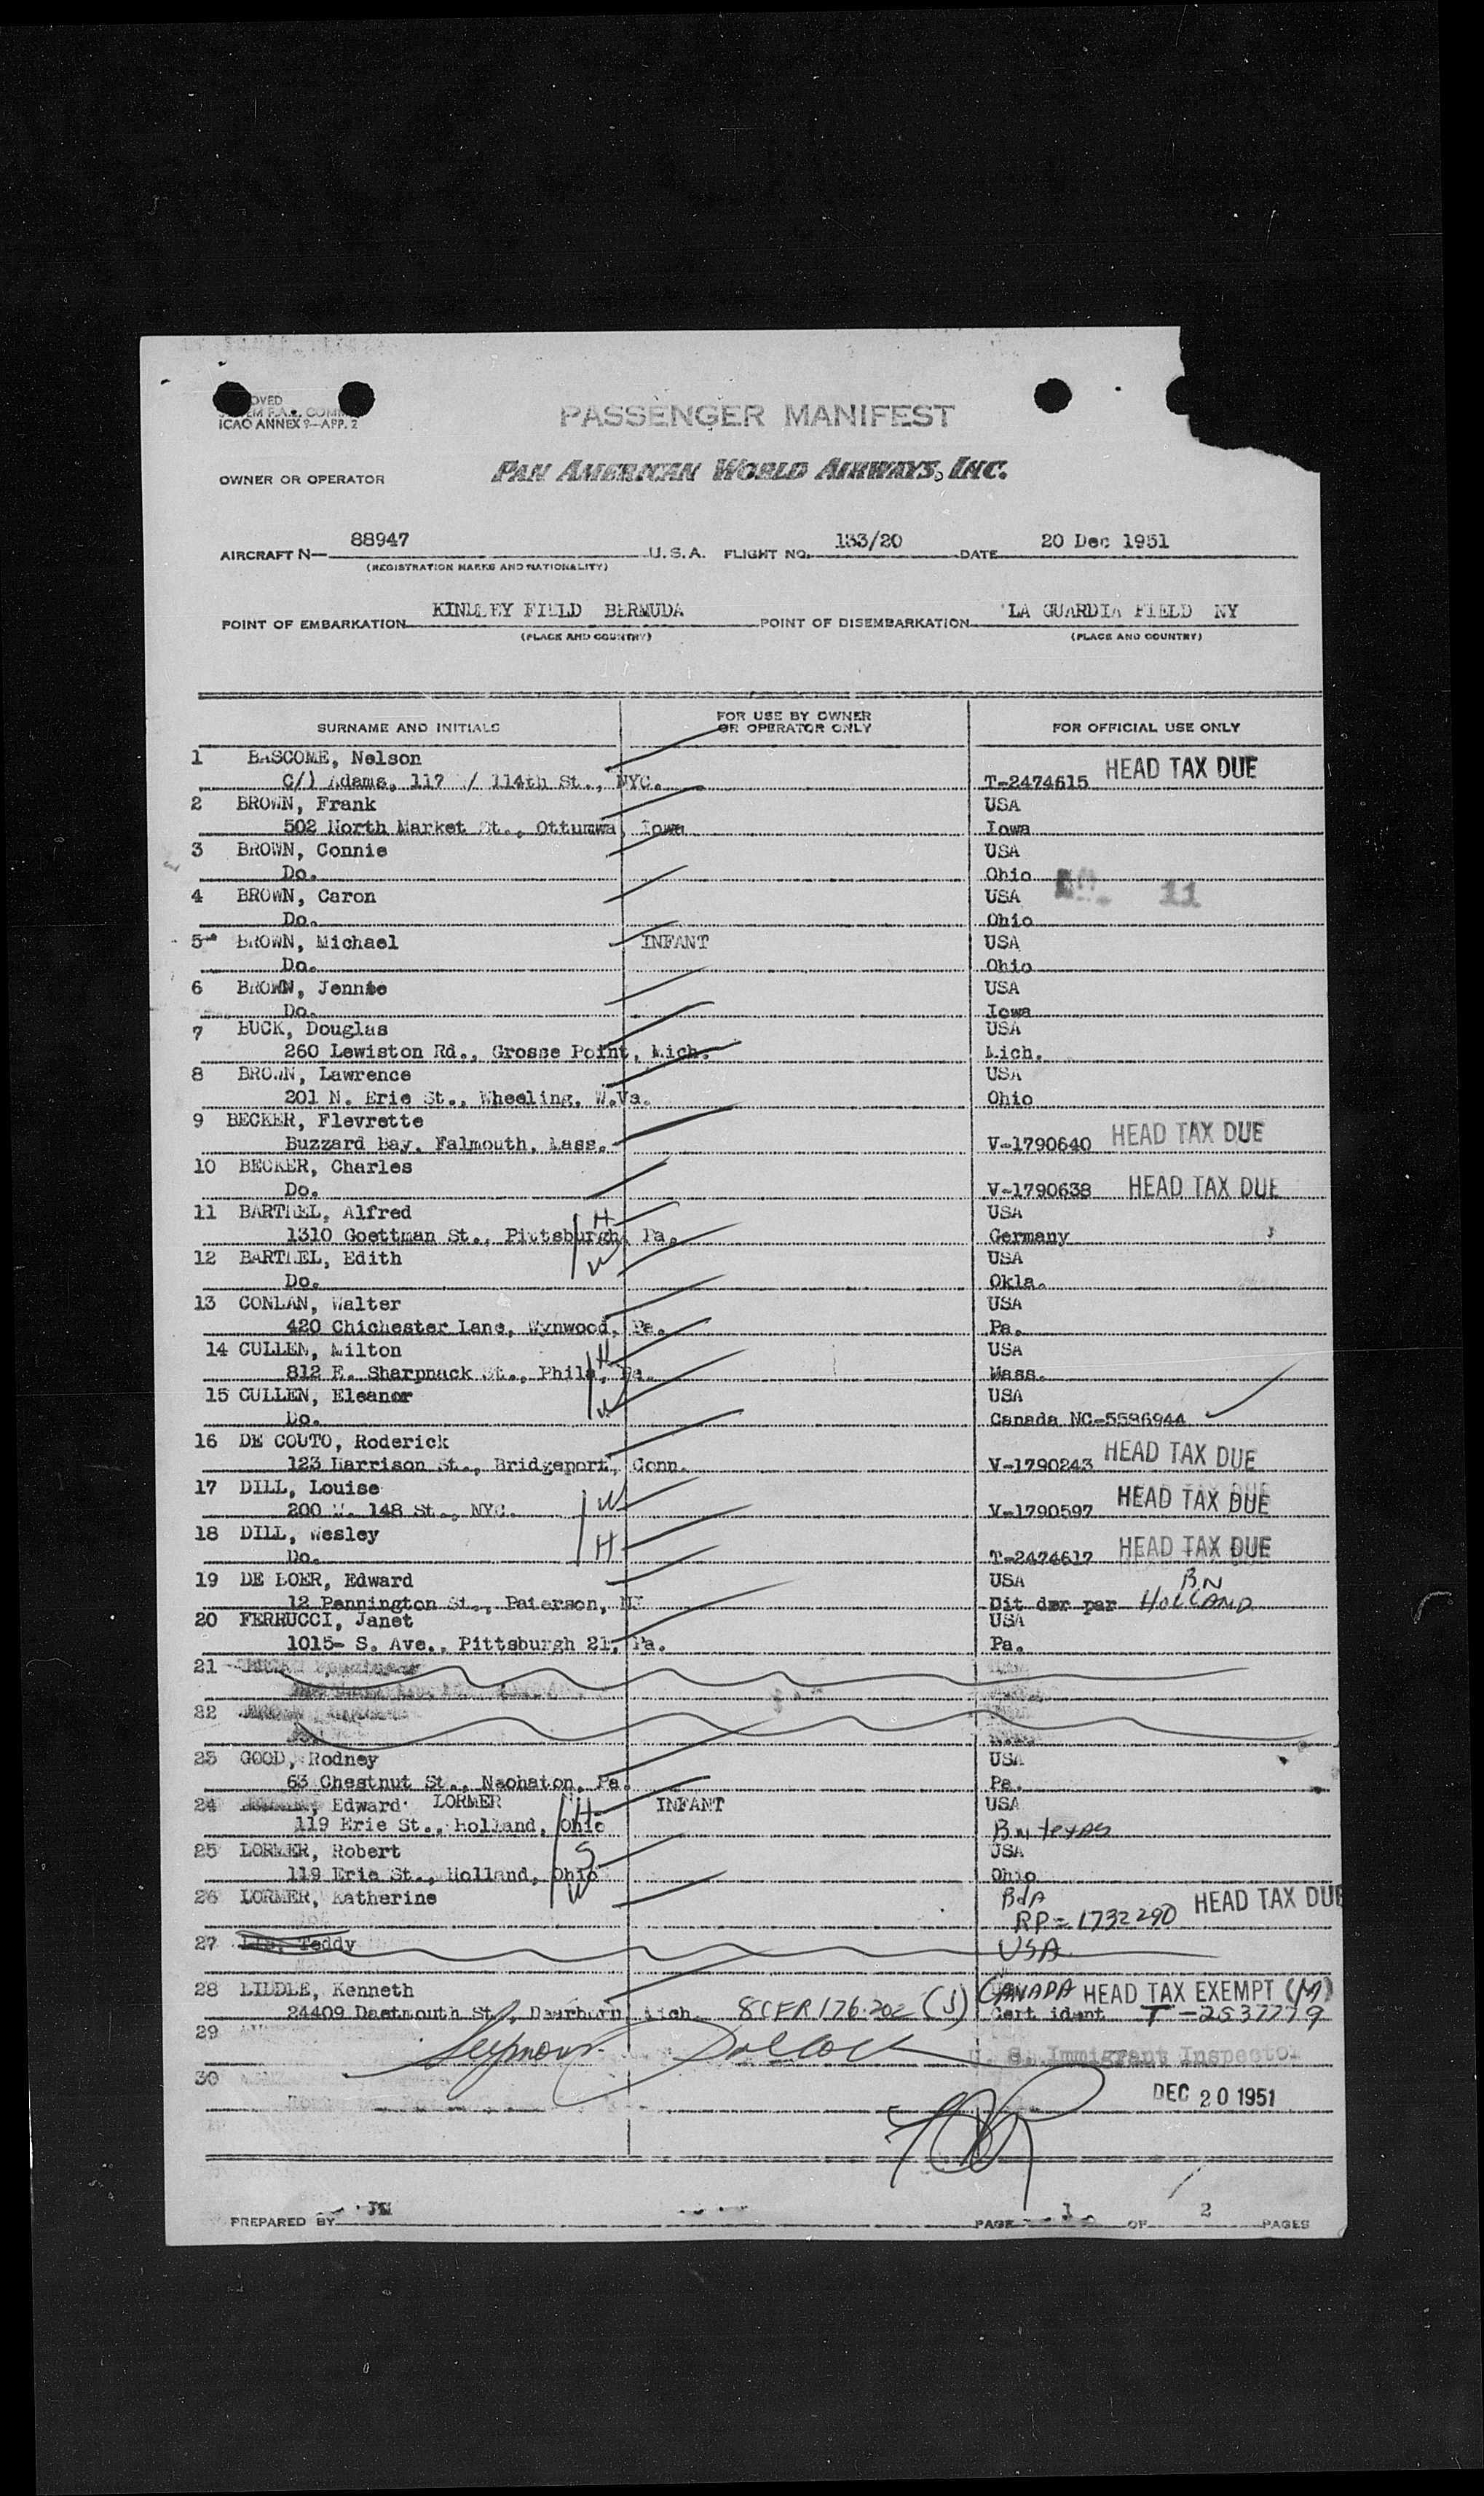 OVED
ICAO ANNEX 9—APP. 2
PASSENGER MANIFEST
OWNER OR OPERATOR PAN AMERICAN WORLD AIRWAYS, INC.
AIRCRAFT N— 88947 U.S.A. FLIGHT NO. 133/20 DATE 20 Dec 1951
(REGISTRATION MARKS AND NATIONALITY)
POINT OF EMBARKATION KINDLEY FIELD BERMUDA POINT OF DISEMBARKATION LA GUARDIA FIELD NY
(PLACE AND COUNTRY) (PLACE AND COUNTRY)
SURNAME AND INITIALS FOR USE BY OWNER OR OPERATOR ONLY FOR OFFICIAL USE ONLY
1 BASCOME, Nelson
C/) Adams, 117 / 114th St., NYC. T-2474615 HEAD TAX DUE
2 BROWN, Frank USA
502 North Market St., Ottumwa, Iowa Iowa
3 BROWN, Connie USA
Do. Ohio
4 BROWN, Caron USA 11
Do. Ohio
5 BROWN, Michael INFANT USA
Do. Ohio
6 BROWN, Jennie USA
Do. Iowa
7 BUCK, Douglas USA
260 Lewiston Rd., Grosse Point, Mich. Mich.
8 BROWN, Lawrence USA
201 N. Erie St., Wheeling, W.Va. Ohio
9 BECKER, Flevrette
Buzzard Bay, Falmouth, Mass. V-1790640 HEAD TAX DUE
10 BECKER, Charles
Do. V-1790638 HEAD TAX DUE
11 BARTHEL, Alfred H USA
1310 Goettman St., Pittsburgh, Pa. Germany
12 BARTHEL, Edith W USA
Do. Okla.
13 CONLAN, Walter USA
420 Chichester Lane, Wynwood, Pa. Pa.
14 CULLEN, Milton H USA
812 E. Sharpnack St., Phila, Pa. Mass.
15 CULLEN, Eleanor W USA
Do. Canada NC-5586944
16 DE COUTO, Roderick
123 Harrison St., Bridgeport, Conn. V-1790243 HEAD TAX DUE
17 DILL, Louise W
200 W. 148 St., NYC. V-1790597 HEAD TAX DUE
18 DILL, Wesley H
Do. T-2474617 HEAD TAX DUE
19 DE BOER, Edward USA BN
12 Pennington St., Paterson, NJ Dit der par HOLLAND
20 FERRUCCI, Janet USA
1015- S. Ave., Pittsburgh 21, Pa. Pa.
21
22
23 GOOD, Rodney USA
63 Chestnut St., Neohaton, Pa. Pa.
24 Edward LORMER H INFANT USA
119 Erie St., Holland, Ohio BN texas
25 LORMER, Robert S USA
119 Erie St., Holland, Ohio Ohio
26 LORMER, Katherine W BdA HEAD TAX DUE
RP=1732290
27 Teddy USA
28 LIDDLE, Kenneth CANADA HEAD TAX EXEMPT (M)
24409 Dartmouth St., Dearborn, Mich. 8CFR176.202 (J) Cert ident T-2637779
29 Seymour Pollock U. S. Immigrant Inspector
30 DEC 20 1951
PREPARED BY JM PAGE 1 OF 2 PAGES